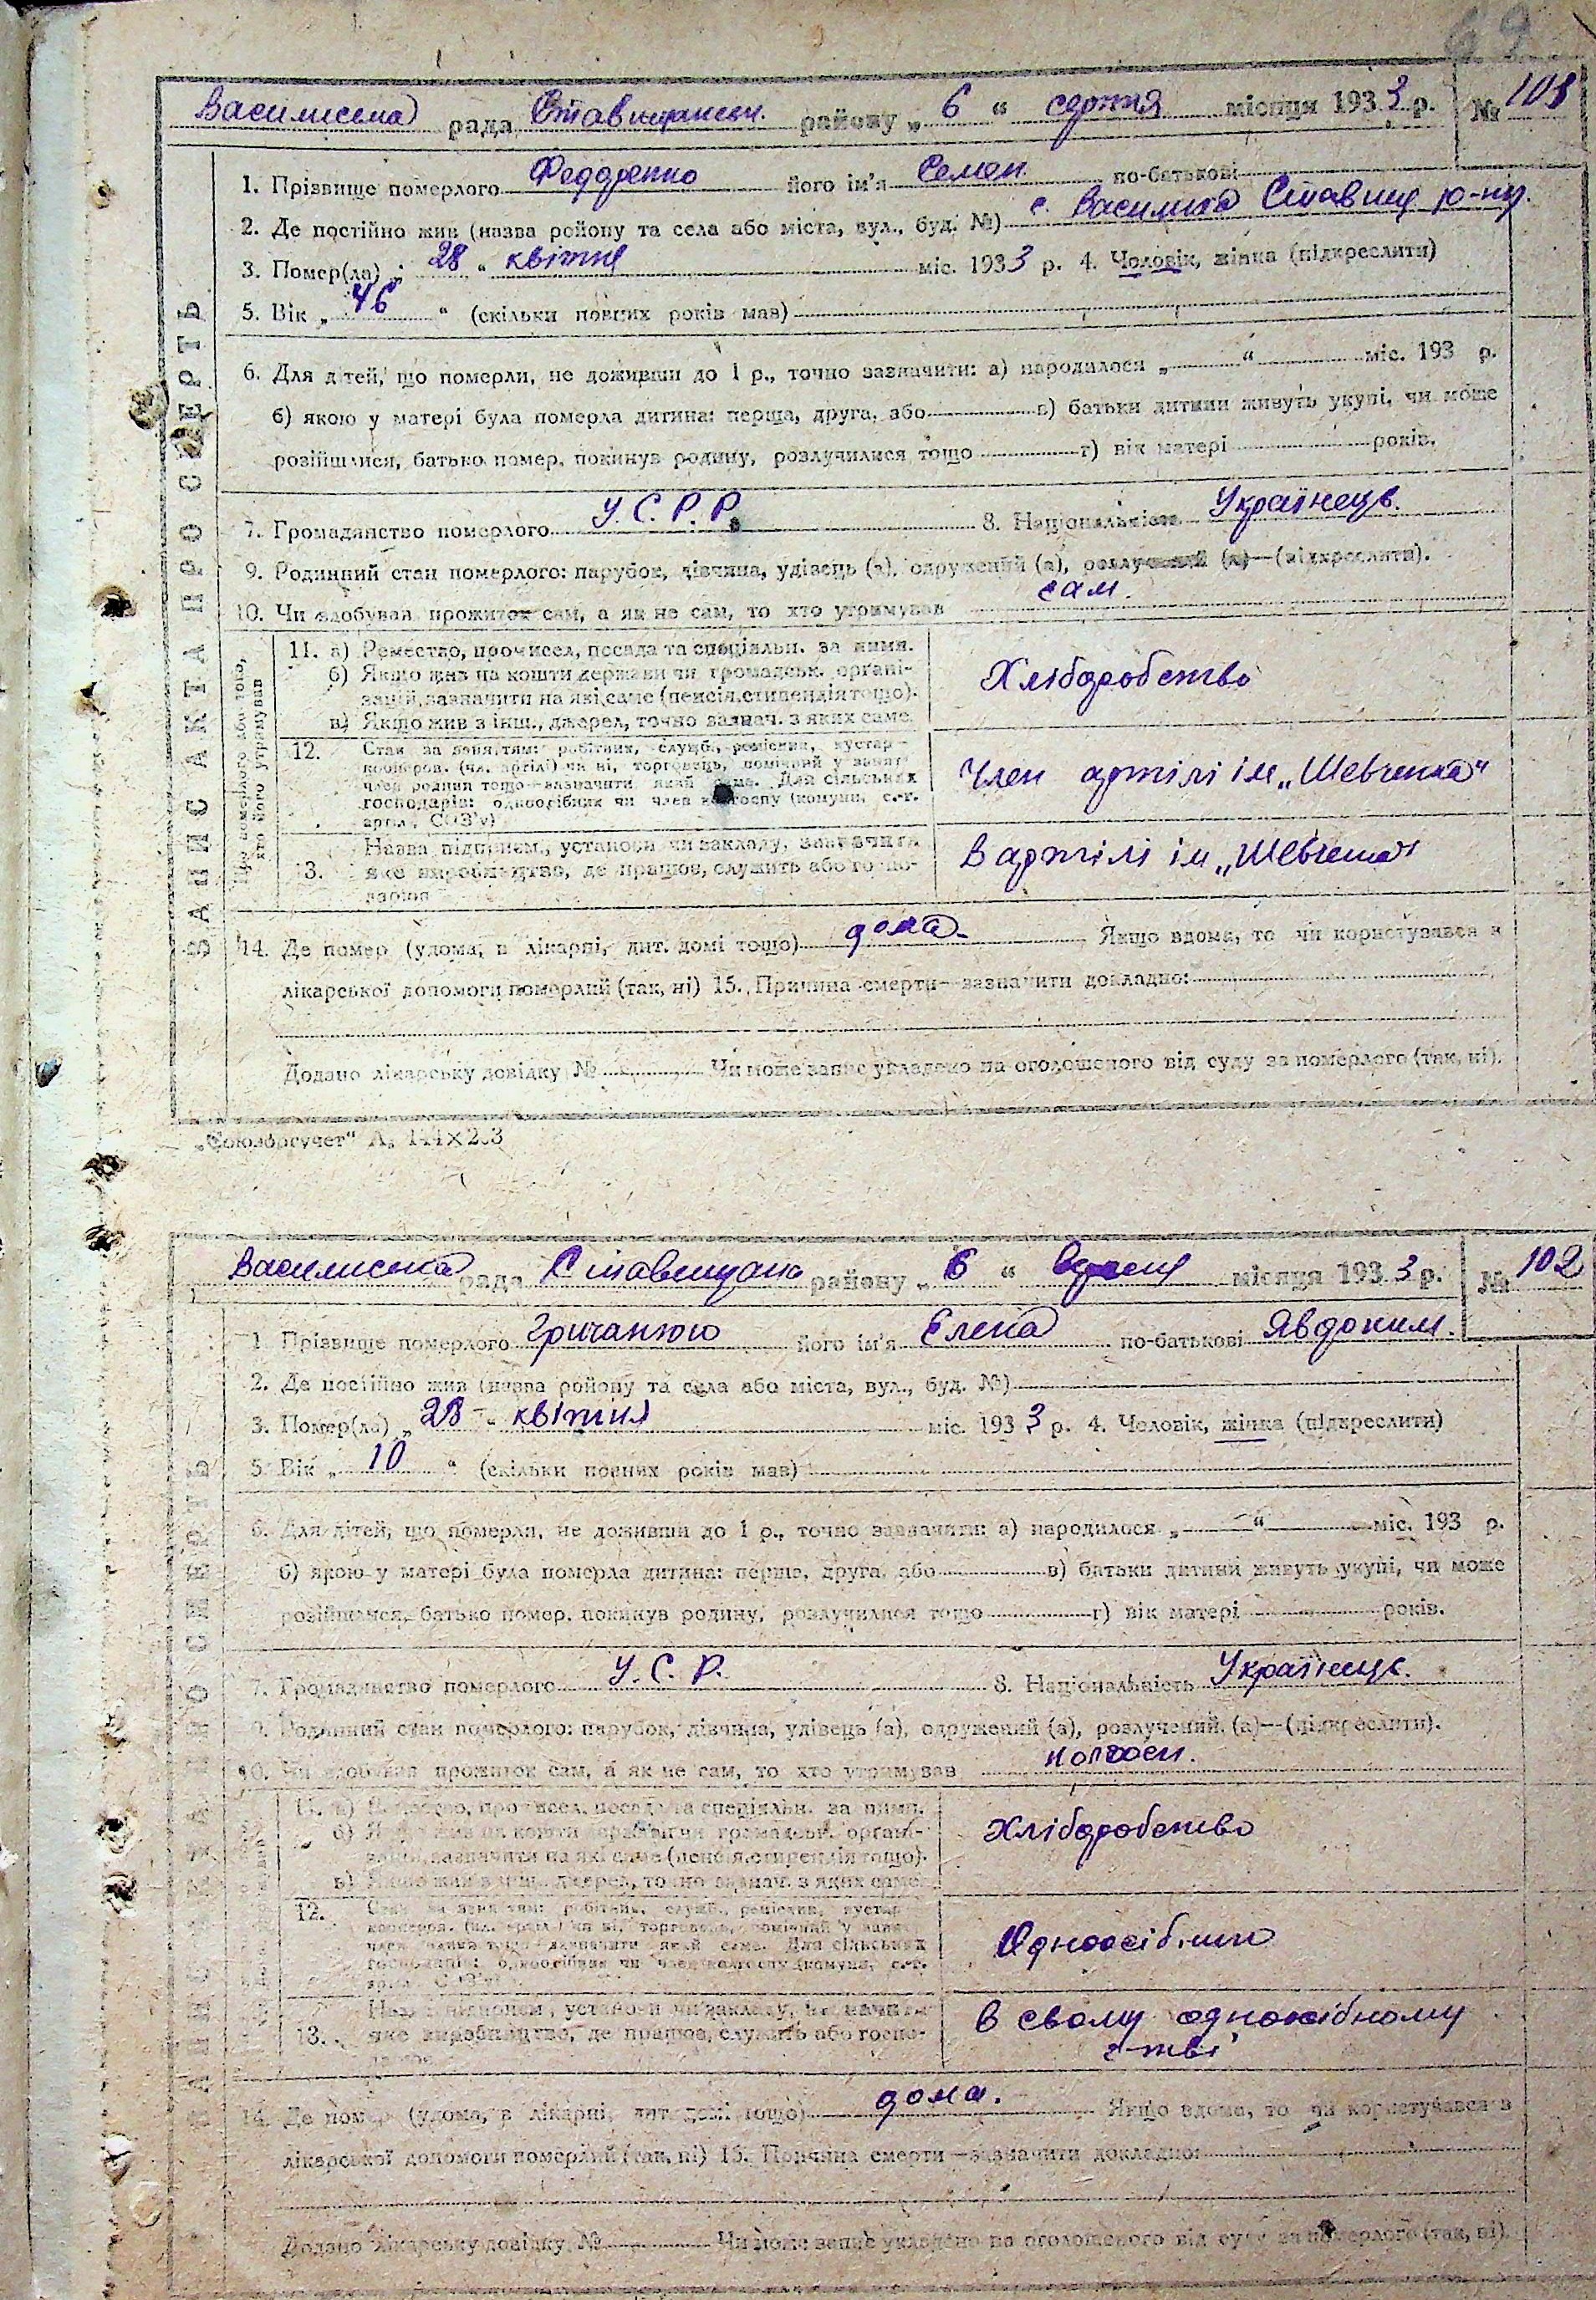 69
Василиська рада Ставищанськ. району „ 6 “ серпня місяця 1933 р. № 101
ЗАПИС АКТА ПРО СМЕРТЬ
1. Прізвище померлого Федоренко його ім'я Семен по-батькові
2. Де постійно жив (назва району та села або міста, вул., буд. №) с. Василиха Ставищ р-ну.
3. Помер(ла) „ 28 “ квітня міс. 1933 р. 4. Чоловік, жінка (підкреслити)
5. Вік „ 46 “ (скільки повних років мав)
6. Для дітей, що померли, не доживши до 1 р., точно зазначити: а) народилося „ “ міс. 193 р.
б) якою у матері була померла дитина: перша, друга, або в) батьки дитини живуть укупі, чи може
розійшлися, батько помер, покинув родину, розлучилися тощо г) вік матері років.
7. Громадянство померлого У.С.Р.Р. 8. Національність Українець.
9. Родинний стан померлого: парубок, дівчина, удівець (а), одружений (а), розлучений (а)—(підкреслити).
10. Чи здобував прожиток сам, а як не сам, то хто утримував сам.
Про померлого або того, хто його утримував
11. а) Ремество, промисел, посада та спеціяльн. за ними.
б) Якщо жив на кошти держави чи громадськ. органі-
зацій, зазначити на які саме (пенсія, стипендія тощо).
в) Якщо жив з інш., джерел, точно зазнач. з яких саме.
Хліборобство
12. Стан за заняттям: робітник, служб., ремісник, кустар -
кооперов. (чл. артілі) чи ні, торговець, помічний у занят.
член родини тощо—зазначити який саме. Для сільських
господарів: одноосібник чи член колгоспу (комуни, с.-г.
артіл., СОЗ'у)
Член артілі ім „Шевченка“
13. Назва підприєм., установи чи закладу, зазначити
яке виробництво, де працює, служить або госпо-
дарює
В артілі ім „Шевченка“
14. Де помер (удома, в лікарні, дит. домі тощо) дома. Якщо вдома, то чи користувався з
лікарської допомоги померлий (так, ні) 15. Причина смерти—зазначити докладно:
Додано лікарську довідку № Чи може запис укладено на оголошеного від суду за померлого (так, ні).
„Союзоргучет“
Василиська рада Ставищано району „ 6 “ місяця 1933 р. № 102
ЗАПИС АКТА ПРО СМЕРТЬ
1. Прізвище померлого Гричанюю його ім'я Єлена по-батькові Явдоким.
2. Де постійно жив (назва району та села або міста, вул., буд. №)
3. Помер(ла) „ 28 “ квітня міс. 1933 р. 4. Чоловік, жінка (підкреслити)
5. Вік „ 10 “ (скільки повних років мав)
6. Для дітей, що померли, не доживши до 1 р., точно зазначити: а) народилося „ “ міс. 193 р.
б) якою у матері була померла дитина: перша, друга, або в) батьки дитини живуть укупі, чи може
розійшлися, батько помер, покинув родину, розлучилися тощо г) вік матері років.
7. Громадянство померлого У.С.Р. 8. Національність Українець.
9. Родинний стан померлого: парубок, дівчина, удівець (а), одружений (а), розлучений (а)—(підкреслити).
10. Чи здобував прожиток сам, а як не сам, то хто утримував
11. а) Ремество, промисел, посада та спеціяльн. за ними.
б) Якщо жив на кошти держави чи громадськ. органі-
зацій, зазначити на які саме (пенсія, стипендія тощо).
в) Якщо жив з інш., джерел, точно зазнач. з яких саме.
Хліборобство
12. Стан за заняттям: робітник, служб., ремісник, кустар -
кооперов. (чл. артілі) чи ні, торговець, помічний у занят.
член родини тощо—зазначити який саме. Для сільських
господарів: одноосібник чи член колгоспу (комуни, с.-г.
артіл., СОЗ'у)
Одноосібник
13. Назва підприєм., установи чи закладу, зазначити
яке виробництво, де працює, служить або госпо-
дарює
в свому одноосібному
г-тві
14. Де помер (удома, в лікарні, дит. домі тощо) дома. Якщо вдома, то чи користувався з
лікарської допомоги померлий (так, ні) 15. Причина смерти—зазначити докладно:
Додано лікарську довідку № Чи може запис укладено на оголошеного від суду за померлого (так, ні).